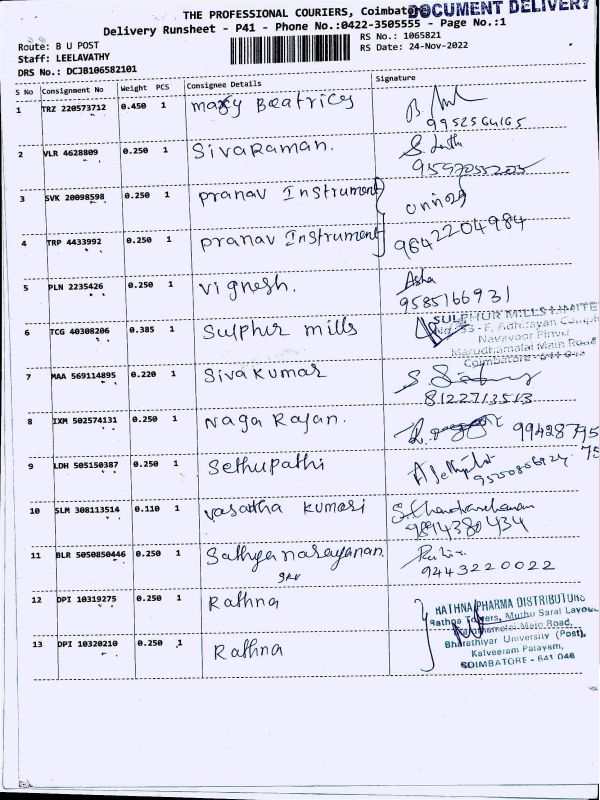 THE PROFESSIONAL COURIERS, Coimbatore
DOCUMENT DELIVERY
Delivery Runsheet - P41 - Phone No.:0422-3505555 - Page No.:1
Route: B U POST
Staff: LEELAVATHY
DRS No.: DCJB106582101
RS No.: 1065821
RS Date: 24-Nov-2022
S No Consignment No Weight PCS Consignee Details Signature
1 TRZ 220573712 0.450 1 mary Beatrices
9952564165
2 VLR 4628809 0.250 1 Sivaraman.
S.
3 SVK 20098598 0.250 1 pranav Instrument
4 TRP 4433992 0.250 1 pranav Instrument
9842204984
5 PLN 2235426 0.250 1 vignesh. Asha
9585166931
6 TCG 40308206 0.385 1 Sulphur mills
SULPHUR MILLS LIMITE
Marudhamalai Main Road
Coimbatore
7 MAA 569114895 0.220 1 Sivakumar S.
8122713513
8 IXM 502574131 0.250 1 Naga Rajan.
9 LDH 505150387 0.250 1 Sethupathi
10 SLM 308113514 0.110 1 vasatha kumari
9894380434
11 BLR 5050850446 0.250 1 Sathyanarayanan
9443220022
12 DPI 10319275 0.250 1 Rathna
13 DPI 10320210 0.250 1 Rathna
RATHNA PHARMA DISTRIBUTORS
Rathna Towers, Muthu Saral Layou
Main Road,
Bharathiyar University (Post),
Kalveeram Palayam,
COIMBATORE - 641 046